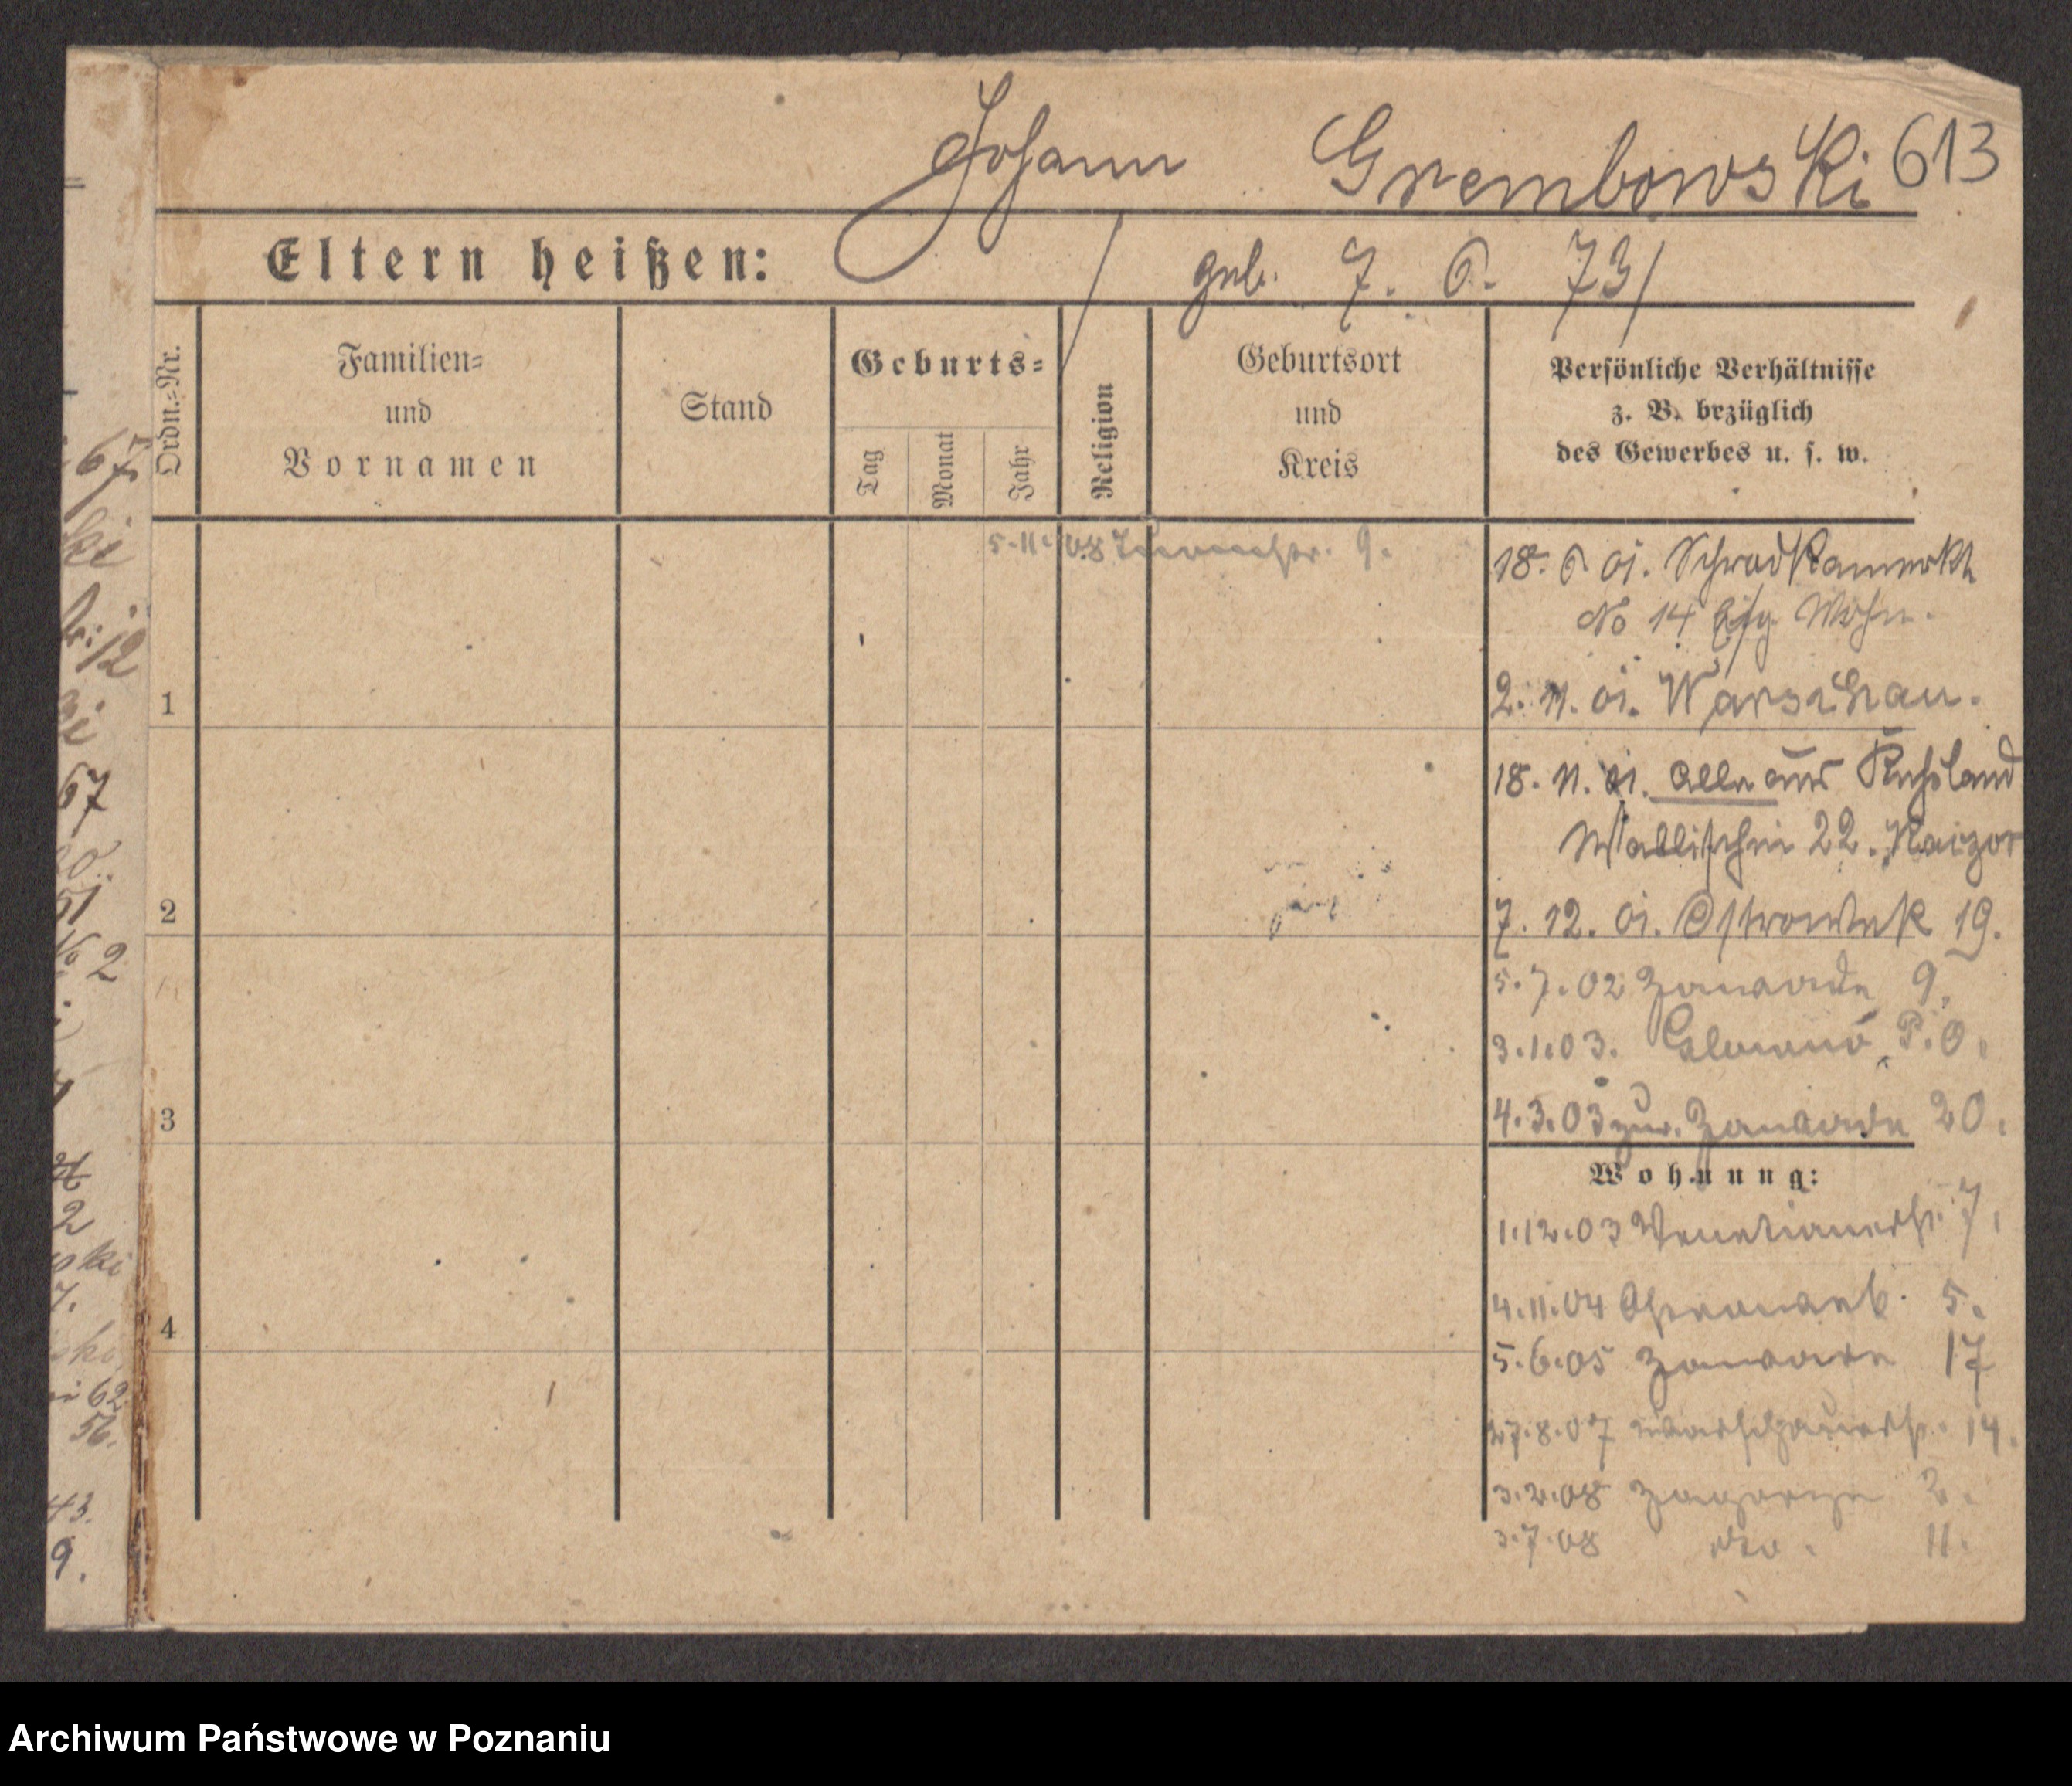 Johann Grembowski 613
Eltern heißen: / geb. 7. 6. 73/
Ordn.-Nr.
Familien-
und
Vornamen
Stand
Geburts-
Tag
Monat
Jahr
Religion
Geburtsort
und
Kreis
Persönliche Verhältnisse
z. B. bezüglich
des Gewerbes u. s. w.
5.11.08 9.
18. 6 01.
No 14 Wohn.
2. 11. 01. Warschau.
1
18. 11. 01. alle aus Rußland
Wallischei 22.
7. 12. 01. Ostrowek 19.
2
5.7.02 Zawade 9.
3.1.03. P.O.
4.3.03 zur. Zawade 20.
3
Wohnung:
1.12.03 Venetianerstr. 7.
4.11.04 5.
4
5.6.05 Zawade 17
27.8.07 Warschauerstr. 14.
3.2.08 Zagorze 2.
3.7.08 do. 11.
67
ki
12
67
51
No 2
2
ski
7.
62
56.
43.
9.
Archiwum Państwowe w Poznaniu